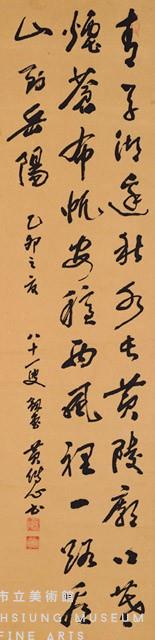 青草湖邊秋水長黃陵廟口暮
煙蒼布帆安穩西風裡一路看
山到岳陽 乙卯之夏 八十一叟 黃傳心書
市立美術館
HSIUNG MUSEUM
FINE ARTS